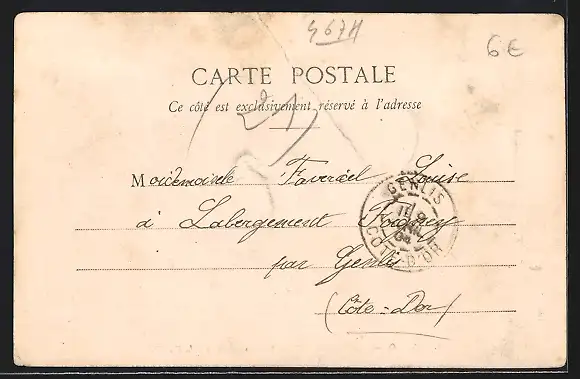 467H
6€
CARTE POSTALE
(21)
Ce côté est exclusivement réservé à l'adresse
Mademoiselle Louise
à Labergement Foigney
par Genlis
(Côte-Dor)
GENLIS
COTE-D'OR